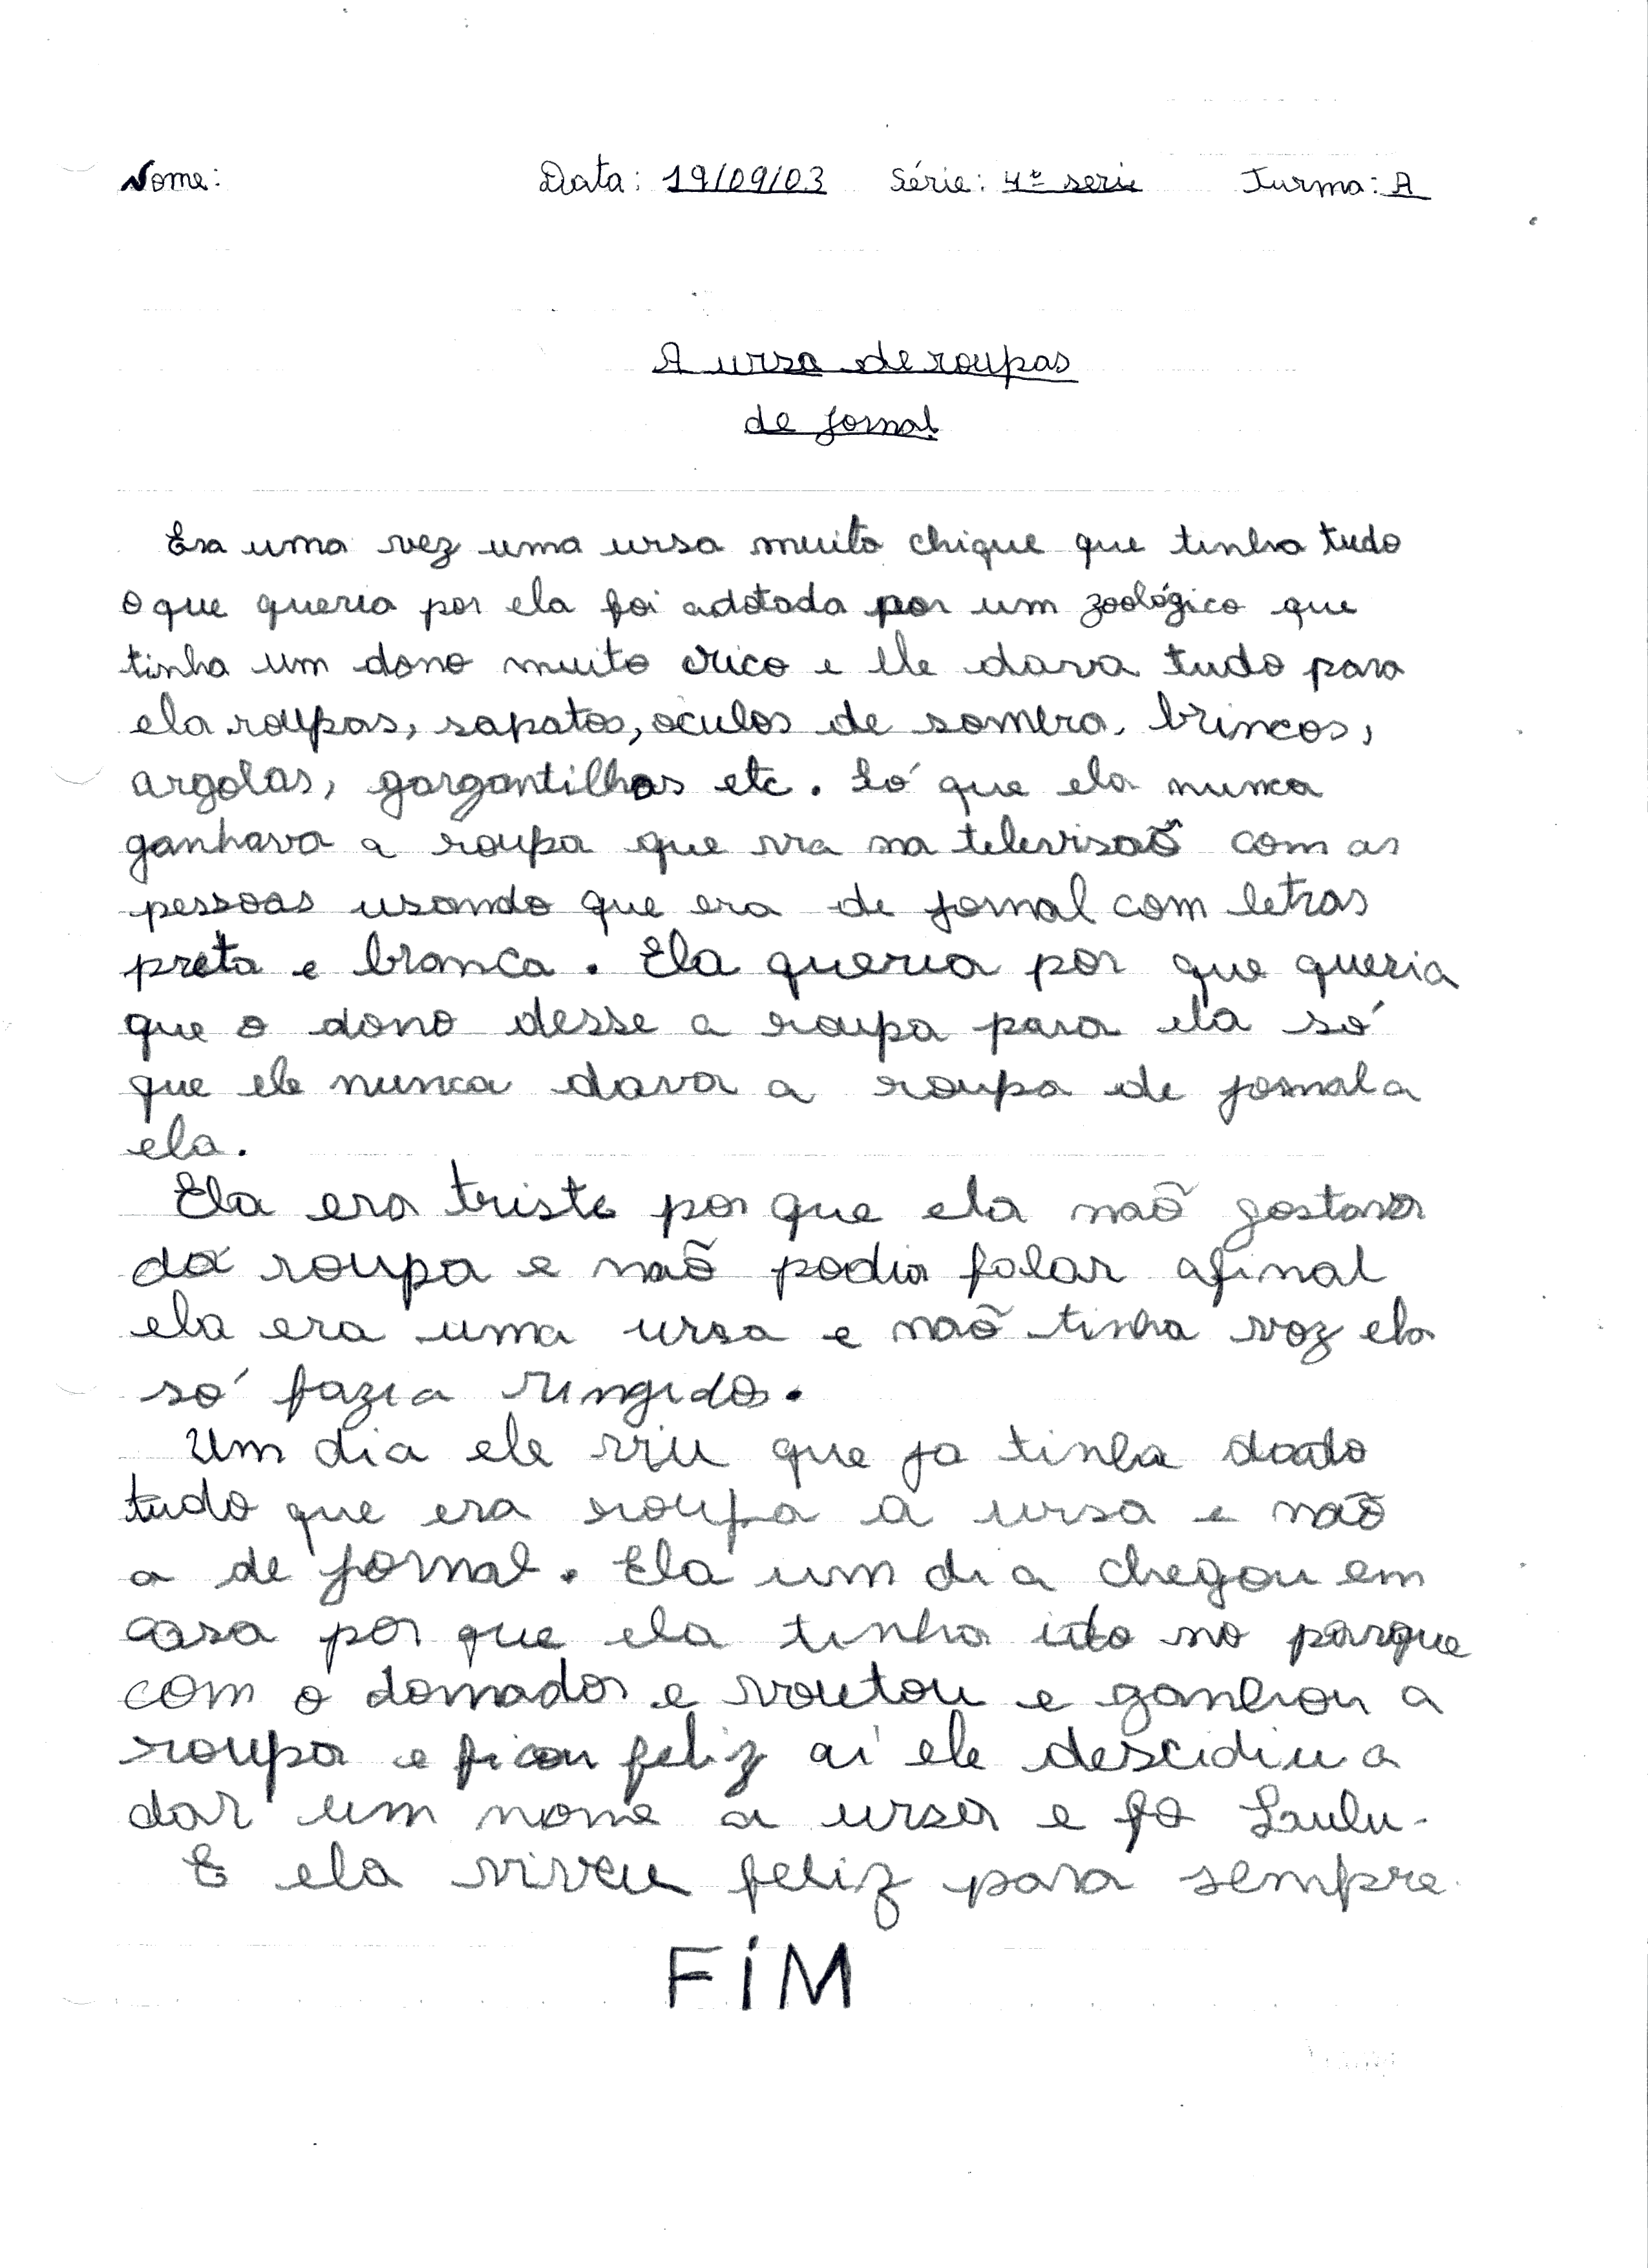 Nome: Data: 19/09/03 Série: 4ª serie Turma: A
A ursa de roupas
de jornal
Era uma vez uma ursa muito chique que tinha tudo
o que queria por ela foi adotada por um zoológico que
tinha um dono muito rico e ele dava tudo para
ela roupas, sapatos, oculos de sombra, brincos,
argolas, gargantilhas etc. Só que ela nunca
ganhava a roupa que via na televisaõ com as
pessoas usando que era de jornal com letras
preta e branca. Ela queria por que queria
que o dono desse a roupa para ela só
que ele nunca dava a roupa de jornal a
ela.
Ela era triste por que ela naõ gostava
da roupa e naõ podia falar afinal
ela era uma ursa e naõ tinha voz ela
só fazia rungidos.
Um dia ele viu que ja tinha doado
tudo que era roupa a ursa e naõ
a de jornal. Ela um dia chegou em
casa por que ela tinha ido no parque
com o domador e voutou e ganhou a
roupa e ficou feliz aí ele descidiu a
dar um nome a ursa e fo Lulu.
E ela viveu feliz para sempre.
FIM